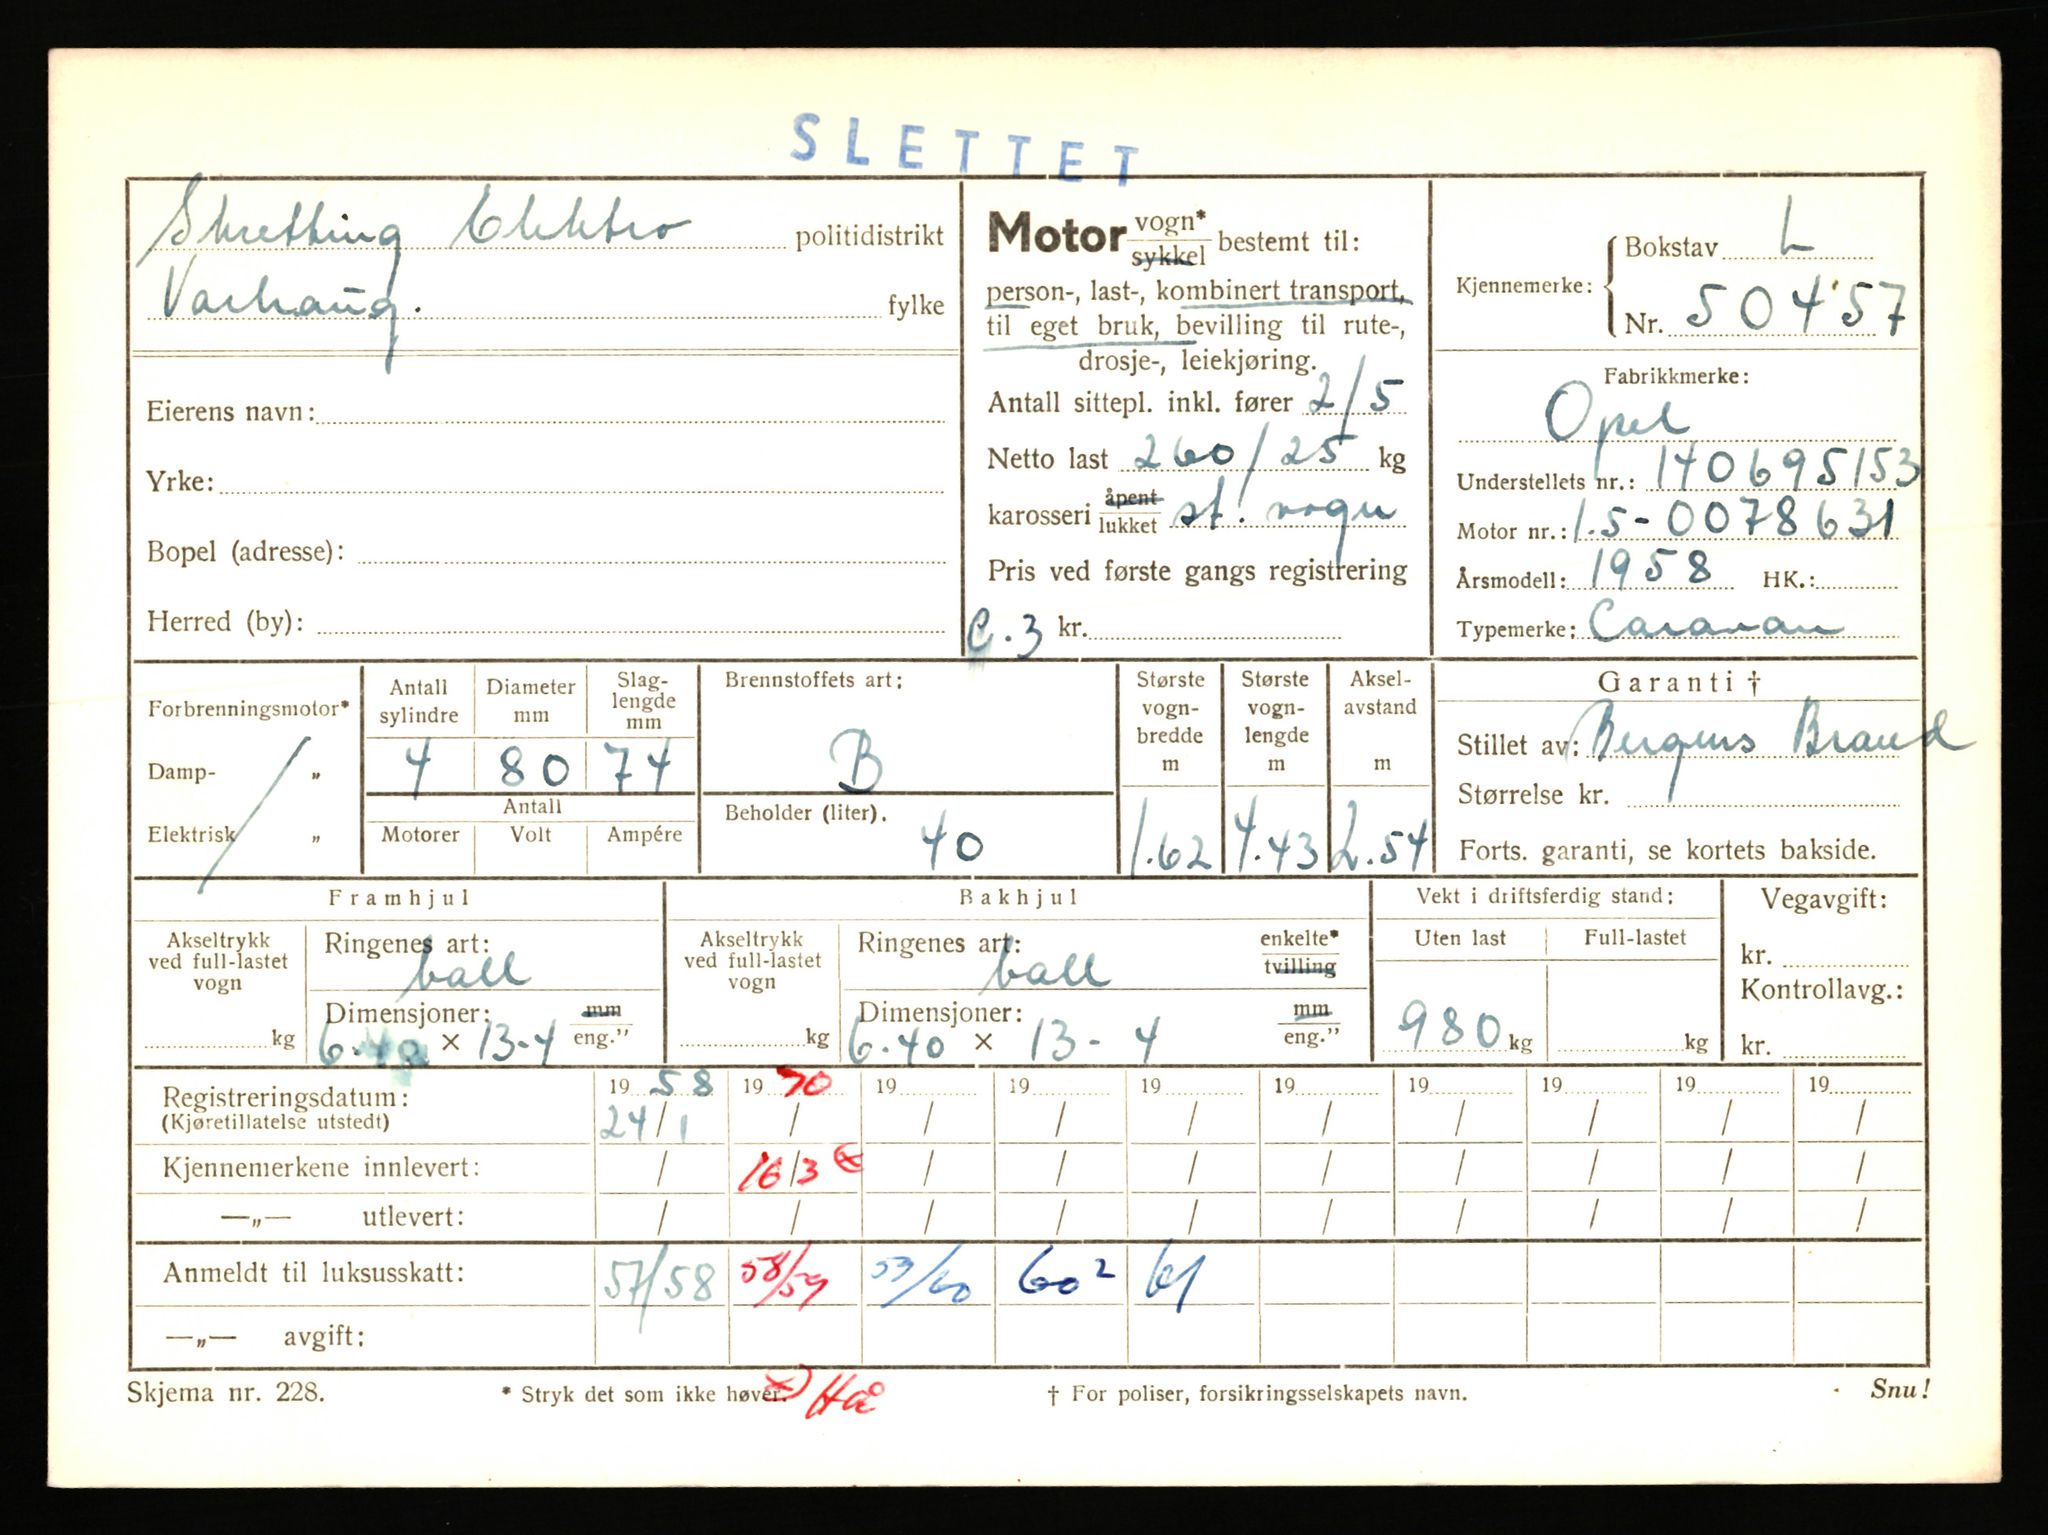 SLETTET
Skretting Elektro politidistrikt
Varhaug. fylke
Eierens navn:
Yrke:
Bopel (adresse):
Herred (by):
Motor vogn* sykkel bestemt til:
person-, last-, kombinert transport,
til eget bruk, bevilling til rute-,
drosje-, leiekjøring.
Antall sittepl. inkl. fører 2/5
Netto last 260/25 kg
karosseri åpent lukket st. vogn
Pris ved første gangs registrering
C.3 kr.
Kjennemerke: Bokstav L
Nr. 50457
Fabrikkmerke:
Opel
Understellets nr.: 140695153
Motor nr.: 1.5-0078631
Årsmodell: 1958 HK.:
Typemerke: Caravan
Forbrenningsmotor*
Damp- „
Elektrisk „
Antall sylindre Diameter mm Slag-lengde mm
4 80 74
Antall
Motorer Volt Ampére
Brennstoffets art:
B
Beholder (liter).
40
Største vogn-bredde m
1.62
Største vogn-lengde m
4.43
Aksel-avstand m
2.54
Garanti †
Stillet av: Bergens Brand
Størrelse kr.
Forts. garanti, se kortets bakside.
Framhjul
Akseltrykk ved full-lastet vogn
kg
Ringenes art:
ball
Dimensjoner: mm
6.40 × 13-4 eng.”
Bakhjul
Akseltrykk ved full-lastet vogn
kg
Ringenes art: enkelte*
ball tvilling
Dimensjoner: mm
6.40 × 13-4 eng.”
Vekt i driftsferdig stand:
Uten last Full-lastet
980 kg kg
Vegavgift:
kr.
Kontrollavg.:
kr.
Registreringsdatum: 19 58 19 70 19 19 19 19 19 19 19 19
(Kjøretillatelse utstedt) 24/1 / / / / / / / / /
Kjennemerkene innlevert: / 16/3 / / / / / / / /
—„— utlevert: / / / / / / / / / /
Anmeldt til luksusskatt: 57/58 58/59 59/60 60² 61
—„— avgift:
Skjema nr. 228. * Stryk det som ikke høver. Hå † For poliser, forsikringsselskapets navn. Snu!